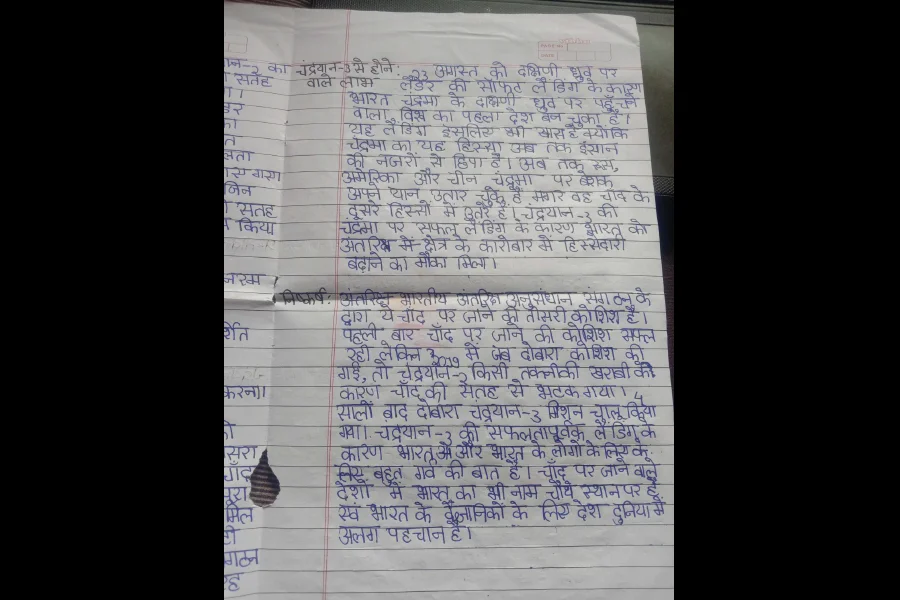 यान-2 का
सतह
सता
जिन
सतह
किया
करना।
सरा
चाँद
पूरा
मिल
गठन
चंद्रयान-3 से होने
वाले लाभ
: 23 अगस्त को दक्षिणी ध्रुव पर
लैंडर की सॉफ्ट लैंडिंग के कारण
भारत चंद्रमा के दक्षिणी ध्रुव पर पहुँचने
वाला विश्व का पहला देश बन चुका है।
यह लैंडिंग इसलिए भी खास है क्योंकि
चंद्रमा का यह हिस्सा अब तक इंसान
की नजरों से छिपा है। अब तक रूस,
अमेरिका और चीन चंद्रमा पर बेशक
अपने यान उतार चुके हैं मगर वह चाँद के
दूसरे हिस्सों में उतरे हैं। चंद्रयान-3 की
चंद्रमा पर सफल लैंडिंग के कारण भारत को
अंतरिक्ष में क्षेत्र के कारोबार में हिस्सेदारी
बढ़ाने का मौका मिला।
निष्कर्ष: अंतरिक्ष भारतीय अंतरिक्ष अनुसंधान संगठन के
द्वारा ये चाँद पर जाने की तीसरी कोशिश है।
पहली बार चाँद पर जाने की कोशिश सफल
रही लेकिन 2019 में जब दोबारा कोशिश की
गई, तो चंद्रयान-2 किसी तकनीकी खराबी की
कारण चाँद की सतह से भटक गया। 4
सालों बाद दोबारा चंद्रयान-3 मिशन चालू किया
गया। चंद्रयान-3 की सफलतापूर्वक लैंडिंग के
कारण भारत और भारत के लोगों के लिए के
लिए बहुत गर्व की बात है। चाँद पर जाने वाले
देशों में भारत का भी नाम चौथे स्थान पर है
एवं भारत के वैज्ञानिकों के लिए देश दुनिया में
अलग पहचान है।